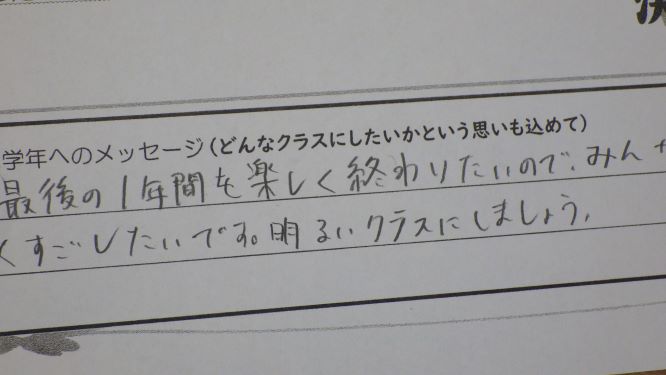 学年へのメッセージ(どんなクラスにしたいかという思いも込めて)
最後の1年間を楽しく終わりたいので、みん
くすごしたいです。明るいクラスにしましょう。